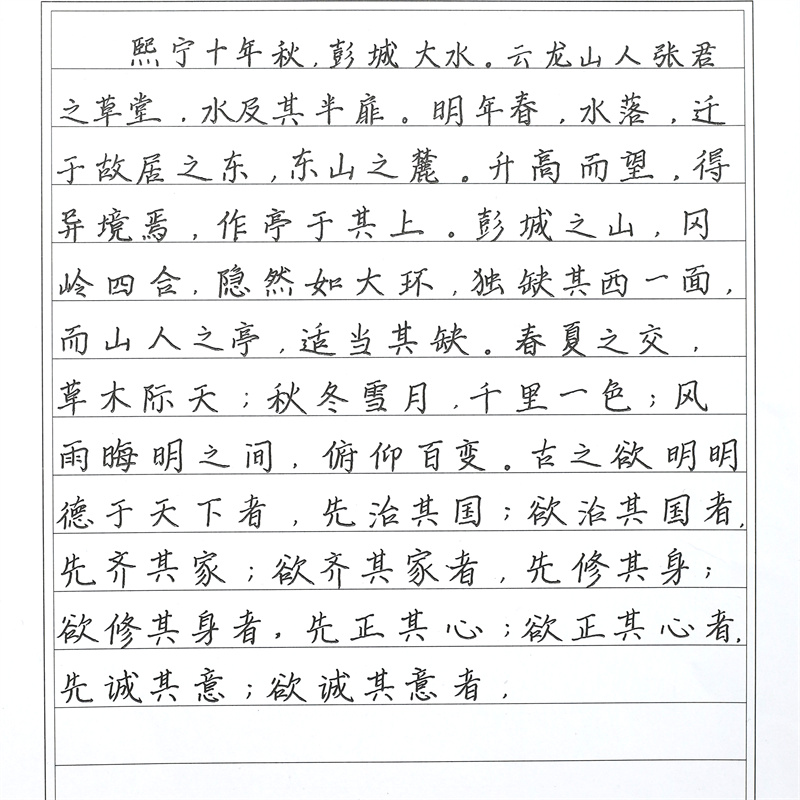 熙宁十年秋,彭城大水。云龙山人张君
之草堂,水及其半扉。明年春,水落,迁
于故居之东,东山之麓。升高而望,得
异境焉,作亭于其上。彭城之山,冈
岭四合,隐然如大环,独缺其西一面,
而山人之亭,适当其缺。春夏之交,
草木际天;秋冬雪月,千里一色;风
雨晦明之间,俯仰百变。古之欲明明
德于天下者,先治其国;欲治其国者,
先齐其家;欲齐其家者,先修其身;
欲修其身者,先正其心;欲正其心者,
先诚其意;欲诚其意者,